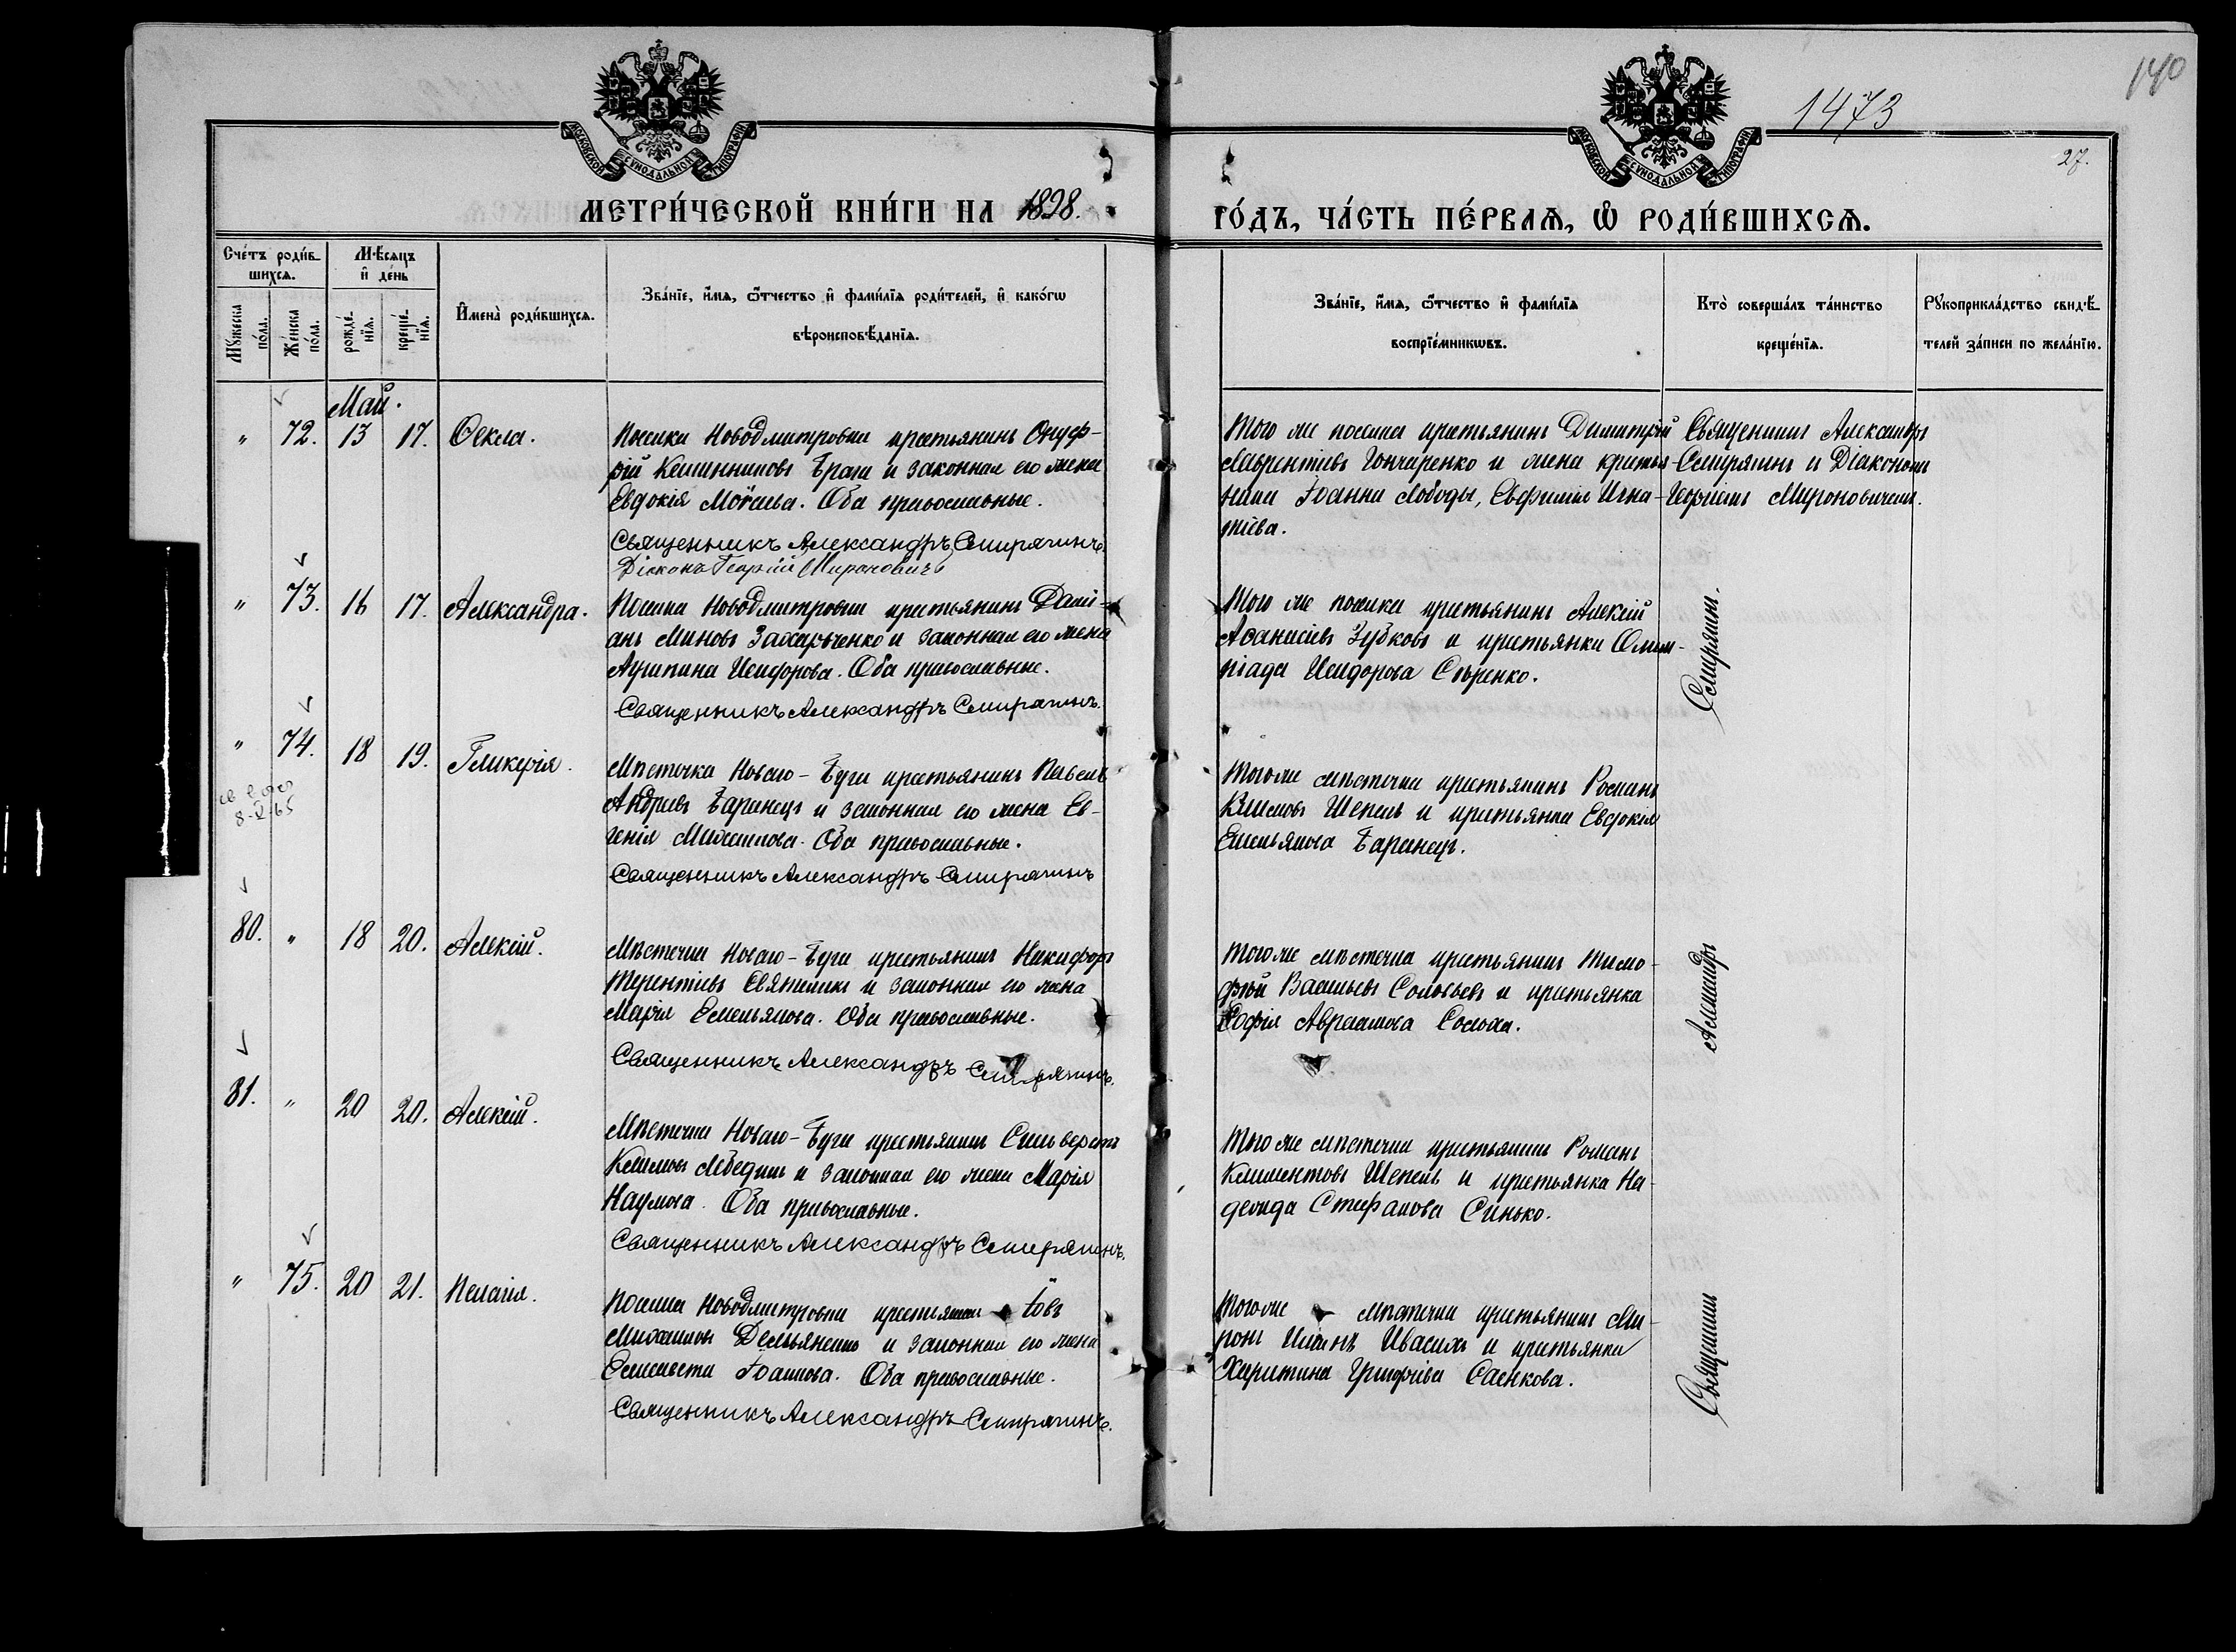 140
1473
27.
МОСКОВСКОЙ СѴНОДАЛЬНОЙ ТИПОГРАФІИ
МОСКОВСКОЙ СѴНОДАЛЬНОЙ ТИПОГРАФІИ
МЕТРИ́ЧЕСКОЙ КНИ́ГИ НА 1898.
ГО́ДЪ, ЧА́СТЬ ПЕ́РВАѦ, Ѽ РОДИ́ВШИХСѦ.
Сче́тъ роди́в-
шихсѧ.
Мꙋ́жеска по́ла.
Же́нска по́ла.
Мѣ́сѧцъ и҆ де́нь
рожде́нїѧ.
креще́нїѧ.
И҆мена̀ роди́вшихсѧ.
Зва́нїе, и҆́мѧ, ѻ҆́тчество и҆ фами́лїѧ роди́телей, и҆ како́гѡ
вѣроисповѣ́данїѧ.
Зва́нїе, и҆́мѧ, ѻ҆́тчество и҆ фами́лїѧ
воспрїе́мникѡвъ.
Кто̀ соверша́лъ та́инство
креще́нїѧ.
Рꙋкоприкла́дство свидѣ́-
телей за́писи по жела́нїю.
Май.
" 72. 13 17. Ѳекла.
Поселка Новодмитровки крестьянинъ Онуф-
рій Калинниковъ Врага и законная его жена
Евдокія Моѵсеева. Оба православные.
Священникъ Александръ Семирягинъ.
Діаконъ Георгій Мироновичъ
Того же поселка крестьянинъ Димитрій
Лаврентіевъ Гончаренко и жена крестья-
нина Іоанна Лободы, Евфимія Игна-
тіева.
Священникъ Александръ
Семирягинъ и Діакономъ
Георгіемъ Мироновичемъ.
" 73. 16 17. Александра.
Поселка Новодмитровки крестьянинъ Даміанъ
анъ Миновъ Захарченко и законная его жена
Агрипина Исидорова. Оба православные.
Священникъ Александръ Семирягинъ.
Того же поселка крестьянинъ Алексій
Аѳанасіевъ Зубковъ и крестьянка Олим-
піада Исидорова Сѣренко.
" 74. 18 19. Гликерія.
8-V-65
Мѣстечка Новаго-Буга крестьянинъ Павелъ
Андреевъ Баранецъ и законная его жена Ев-
генія Михаилова. Оба православные.
Священникъ Александръ Семирягинъ
Того же мѣстечка крестьянинъ Романъ
Климовъ Шепель и крестьянка Евдокія
Емельянова Баранецъ.
80. " 18 20. Алексій.
Мѣстечка Новаго-Буга крестьянинъ Никифоръ
Терентіевъ Святеликъ и законная его жена
Марія Емельянова. Оба православные.
Священникъ Александръ Семирягинъ.
Того же мѣстечка крестьянинъ Тимо-
фей Васильевъ Соловьевъ и крестьянка
Софія Авраамова Солоха.
81. " 20 20. Алексій.
Мѣстечка Новаго-Буга крестьянинъ Сильверстъ
Климовъ Лебединъ и законная его жена Марія
Наумова. Оба православные.
Священникъ Александръ Семирягинъ.
Того же мѣстечка крестьянинъ Романъ
Климентовъ Шепель и крестьянка На-
дежда Стефанова Синько.
" 75. 20 21. Пелагія.
Поселка Новодмитровки крестьянинъ Іовъ
Михаиловъ Демьяненко и законная его жена
Елисавета Іоаннова. Оба православные.
Священникъ Александръ Семирягинъ.
Того же мѣстечка крестьянинъ Ми-
ронъ Ивасихъ и крестьянка
Харитина Григоріева Саенкова.
Священникъ Александръ Семирягинъ.